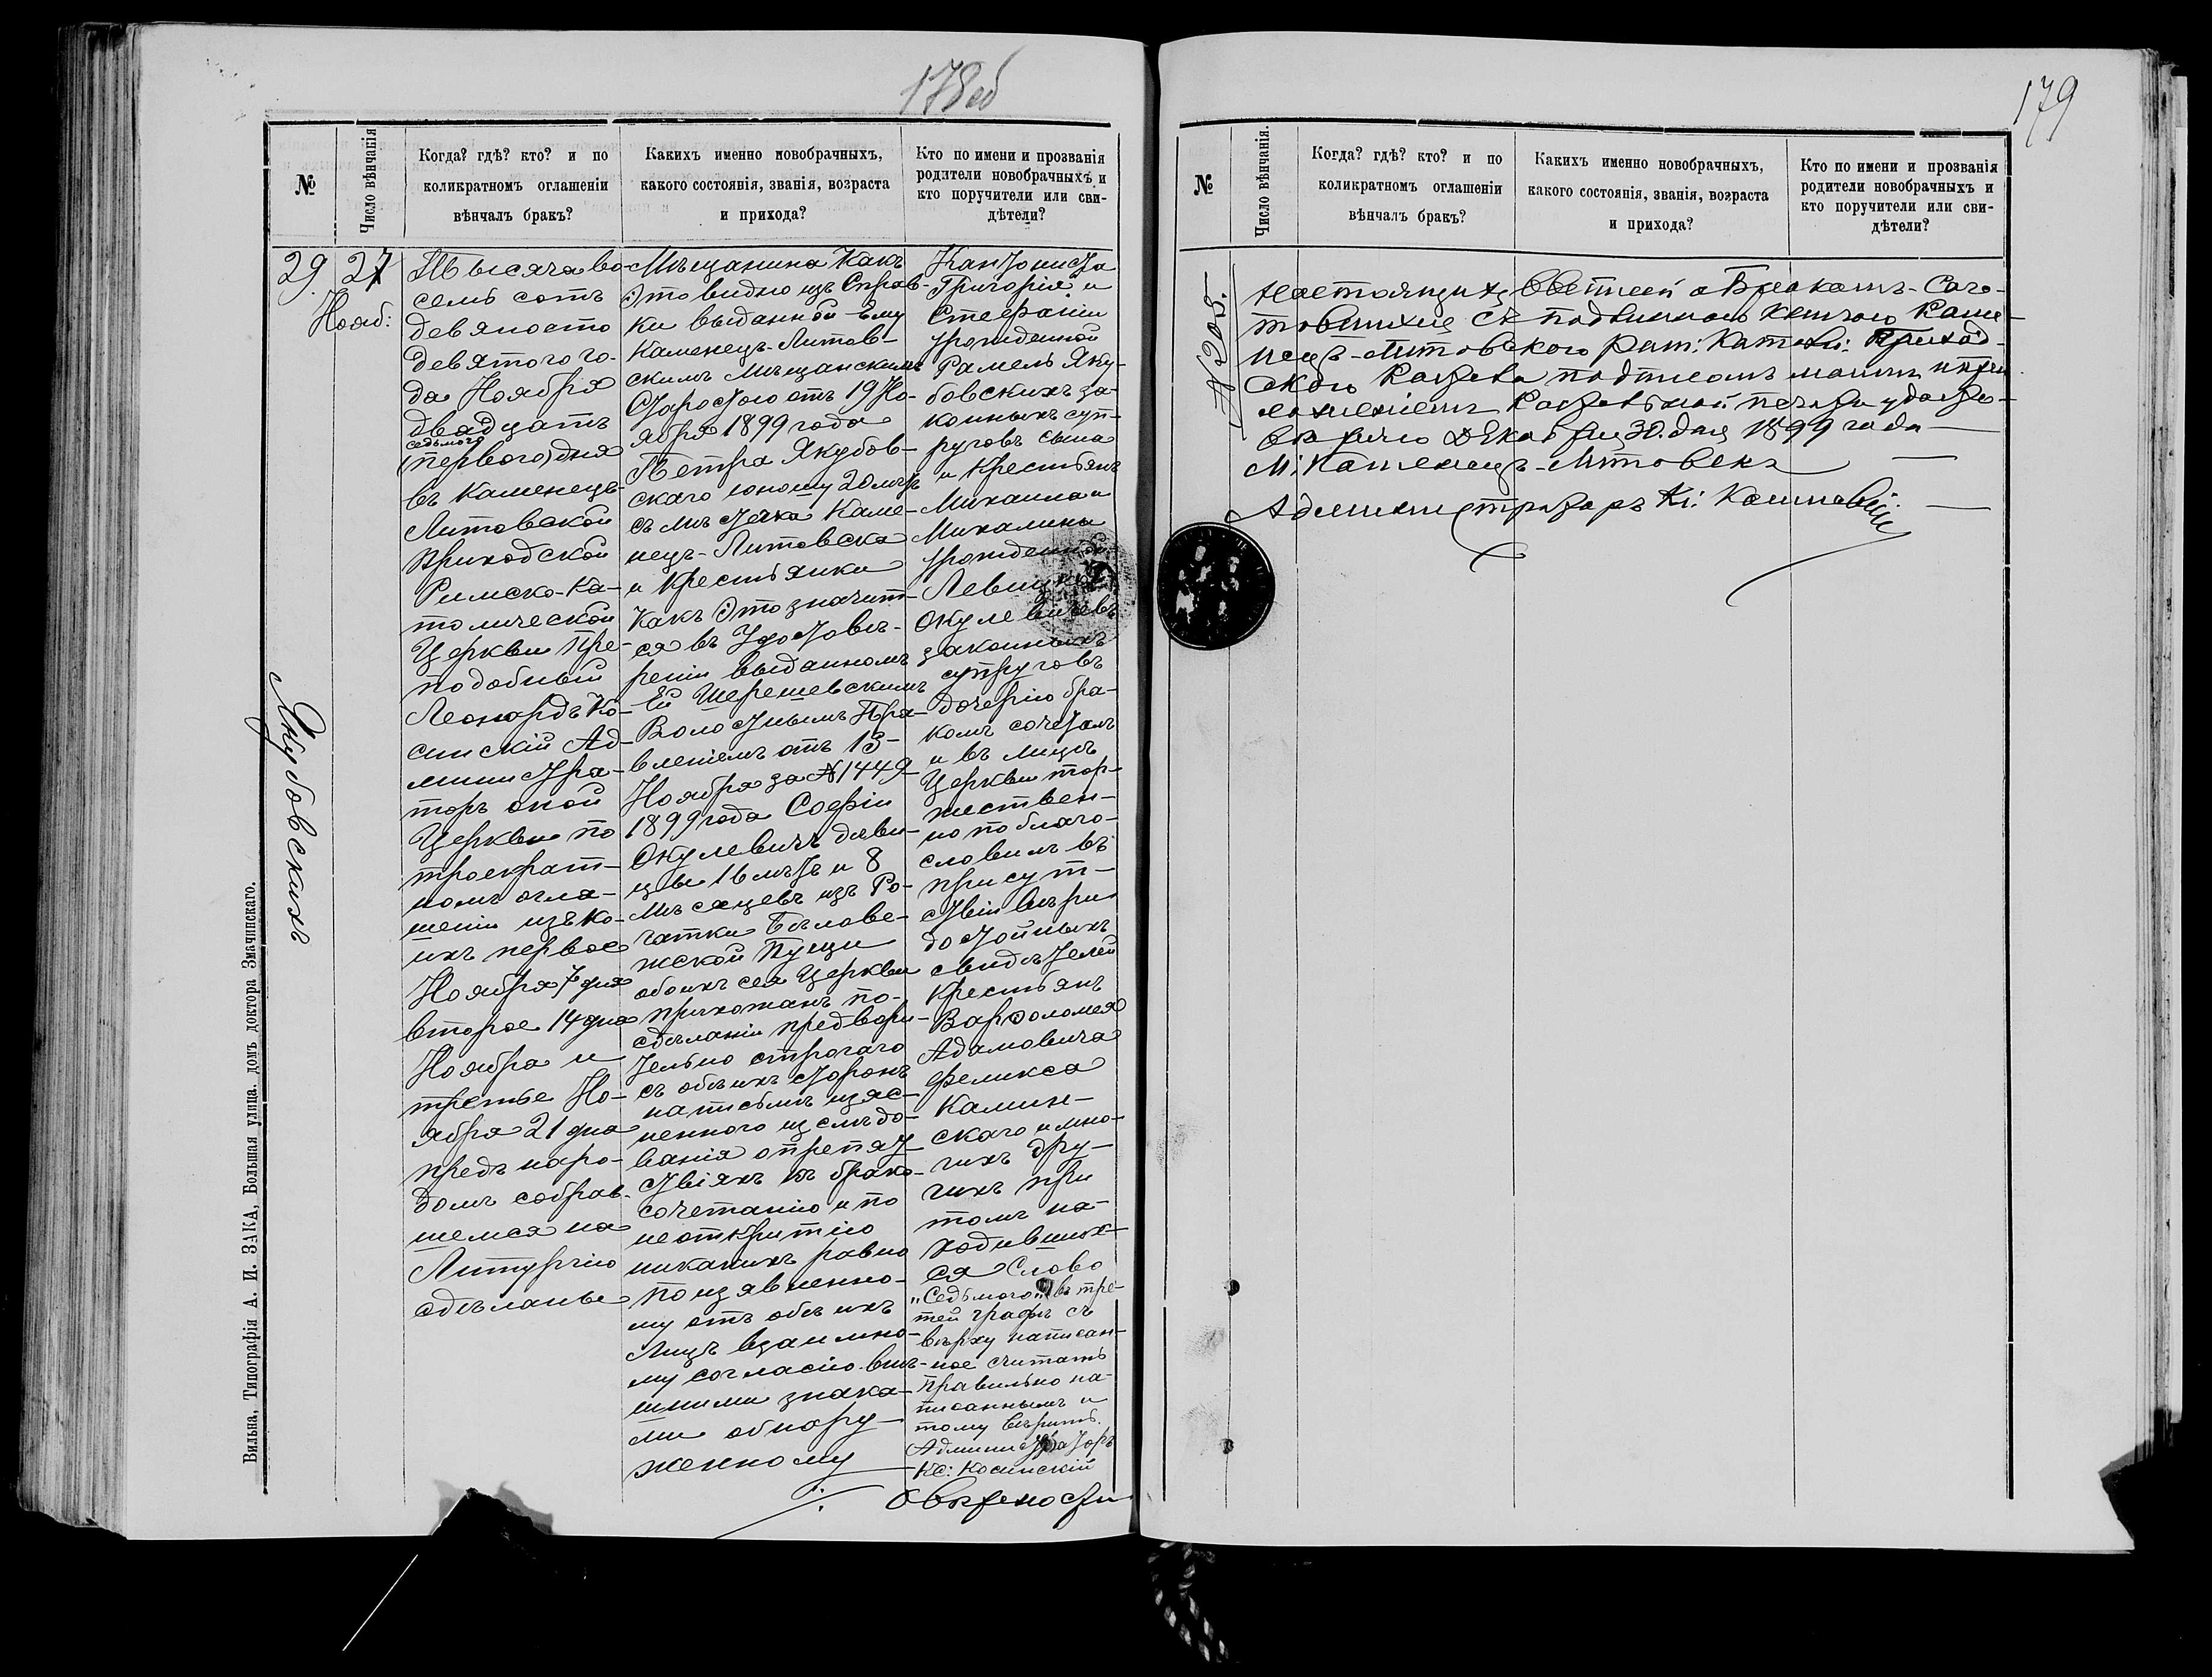 178об
№
Число вѣнчанія
Когда? гдѣ? кто? и по
коликратномъ оглашеніи
вѣнчалъ бракъ?
Какихъ именно новобрачныхъ,
какого состоянія, званія, возраста
и прихода?
Кто по имени и прозванія
родители новобрачныхъ и
кто поручители или сви-
дѣтели?
29.
27
Нояб:
Якубовскихъ
Тысяча во-
семь сотъ
девяносто
девятого го-
да Ноября
двадцать
седьмого
(первого) дня
въ Каменецъ-
Литовской
приходской
Римско-Ка-
толической
Церкви Пре-
подобный
Леонардъ Ко-
синскій Ад-
министра-
торъ оной
Церкви по
троекрат-
номъ огла-
шеніи изъ ко-
ихъ первое
Ноября 7 дня
второе 14 дна
Ноября и
третье Но-
ября 21 дна
предъ наро-
домъ собрав-
шемся на
Литургію
сдѣланые
Мѣщанина Какъ
Это видно изъ Справ-
ки выданной Ему
Каменецъ-Литов-
скимъ Мѣщанскимъ
Старостою отъ 19 Но-
ября 1899 года
Петра Якубов-
скаго юношу 20 лѣтъ
съ мѣстечка Каме-
нецъ-Литовска
и Крестьянки
Какъ Это значит-
ся въ Удостовѣ-
реніи выданномъ
Ей Шерешевскимъ
Волостнымъ Пра-
вленіемъ отъ 13-
Ноября за № 1449
1899 года Софіи
Окулевичъ дѣви-
цы 16 лѣтъ и 8
Мѣсяцевъ изъ Ро-
гатки Бѣлове-
жской Пущи
обоихъ сея Церкви
прихожанъ по-
сдѣланіи предвари-
тельно строгаго
съ обѣихъ сторонъ
на письмѣ изяс-
неннаго изслѣдо-
ванія о препят-
ствіяхъ къ брако-
сочетанію и по
неоткрытію
никакихъ равно
по изявленно-
му отъ обѣихъ
Лицъ взаимно-
му согласію внѣ-
шними знака-
ми обнару-
женному
Кантониста
Григорія и
Стефаніи
урожденной
Рамель Яку-
бовскихъ за-
конныхъ суп-
руговъ сына
и Крестьянъ
Михаила и
Михалины
урожденной
Левицкой
Окулевичевъ
законныхъ
супруговъ
дочерію бра-
комъ сочеталъ
и въ лицѣ
Церкви тор-
жествен-
но поблаго-
словилъ въ
присут-
ствіи вѣри
достойныхъ
свидѣтелей
Крестьянъ
Варѳоломея
Адамовича
Феликса
Камин-
скаго и мно-
гихъ дру-
гихъ при
томъ на-
ходивших-
ся Слово
„Седьмого“ въ тре-
тей графѣ съ
вѣрху написан-
ное считать
правильно на-
писаннымъ и
тому вѣрить.
Администраторъ
Кс: Косинскій
О вѣрности
Вильна, Типографія А. И. ЗАКА, Большая улица. домъ доктора Змачинскаго.
179
№
Число вѣнчанія.
Когда? гдѣ? кто? и по
коликратномъ оглашеніи
вѣнчалъ бракъ?
Какихъ именно новобрачныхъ,
какого состоянія, званія, возраста
и прихода?
Кто по имени и прозванія
родители новобрачныхъ и
кто поручители или сви-
дѣтели?
№ 205.
настоящихъ о Бракахъ- Соче-
тавшихся съ подлинною книгою Каме-
нецъ-Литовского Рим: Катол: Приход-
скаго Костела подписомъ моимъ и при
ложеніемъ Костельной печати удосто-
вѣряю Декабря 30. дня 1899 года
М: Каменецъ-Литовскъ
Администраторъ Кс: Косинскій